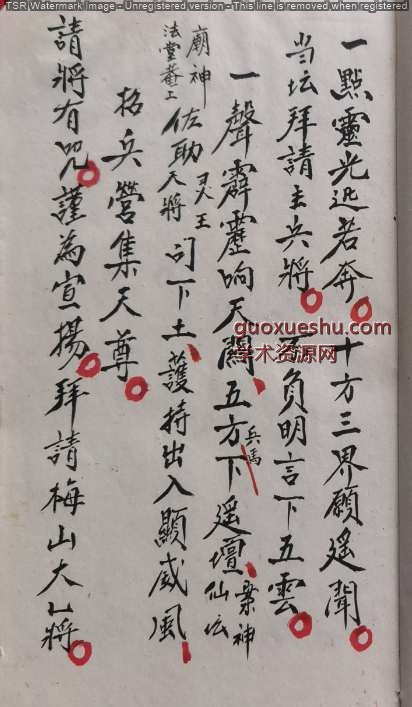 TSR Watermark Image - Unregistered version - This line is removed when registered
一點靈光迅若奔十方三界願遙聞
当坛拜請主兵將不負明言下五雲
一聲霹靂响天闊五方兵馬下遙壇案神仙坛
廟神法堂養上佐助天將天王司下土護持出入顯威風
招兵營集天尊
請將有咒謹為宣揚拜請梅山大乚將
guoxueshu.com
学术资源网